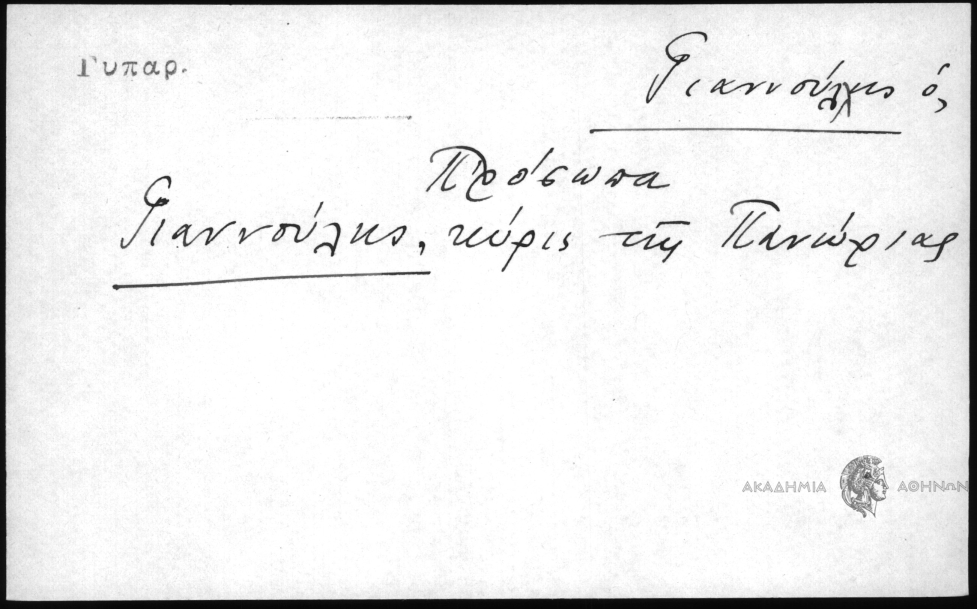 Γυπαρ.
Γιαννούλης ὁ,
Πρόσωπα
Γιαννούλης, κύρις τῆς Πανώριας
ΑΚΑΔΗΜΙΑ ΑΘΗΝΩΝ